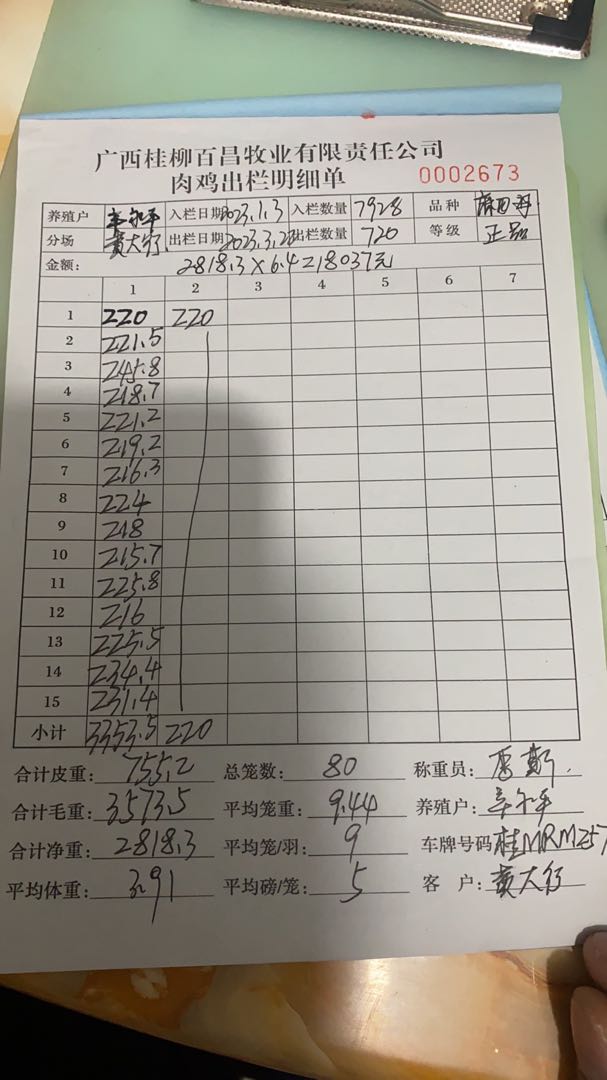 广西桂柳百昌牧业有限责任公司
肉鸡出栏明细单 0002673
养殖户 入栏日期 2023.1.3 入栏数量 7928 品种
分场 黄大行 出栏日期 2023.3.2 出栏数量 720 等级 正品
金额: 2818.3×6.4=18037元
1 2 3 4 5 6 7
1 220 220
2 221.5
3 245.8
4 218.7
5 221.2
6 219.2
7 216.3
8 224
9 218
10 215.7
11 225.8
12 216
13 225.5
14 234.4
15 231.4
小计 3353.5 220
合计皮重: 755.2 总笼数: 80 称重员:
合计毛重: 3573.5 平均笼重: 9.44 养殖户:
合计净重: 2818.3 平均笼/羽: 9 车牌号码 桂MRMZ57
平均体重: 3.91 平均磅/笼: 5 客 户: 黄大行